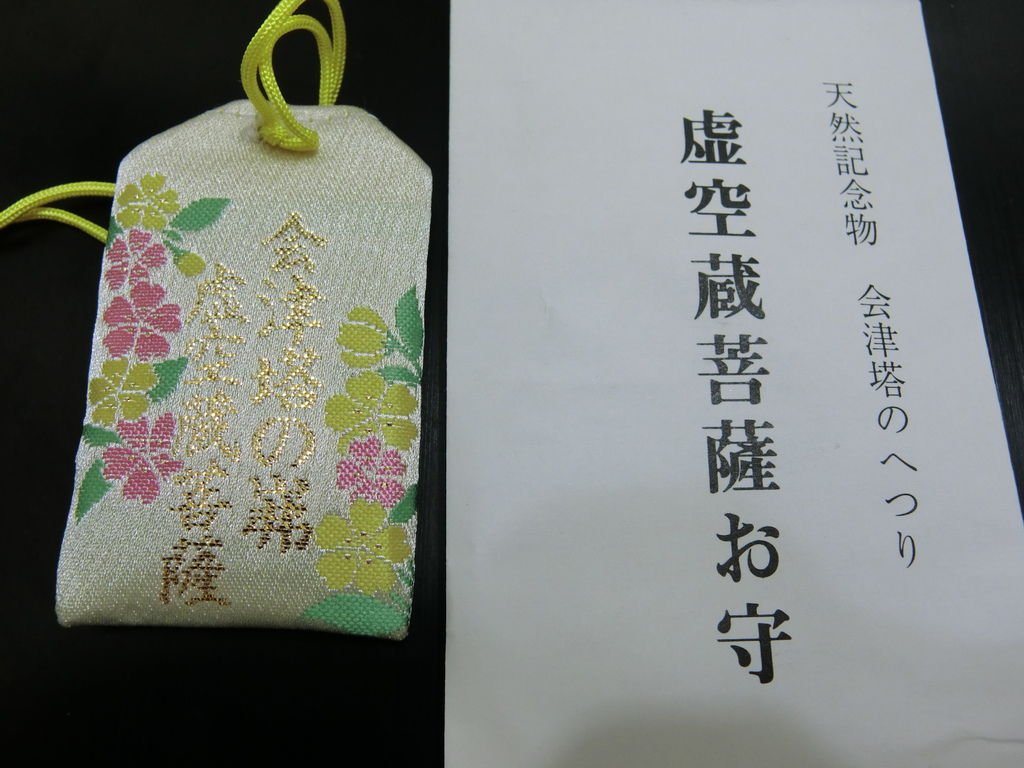 天然記念物 会津塔のへつり
虚空蔵菩薩お守
会津塔の
虚空蔵菩薩